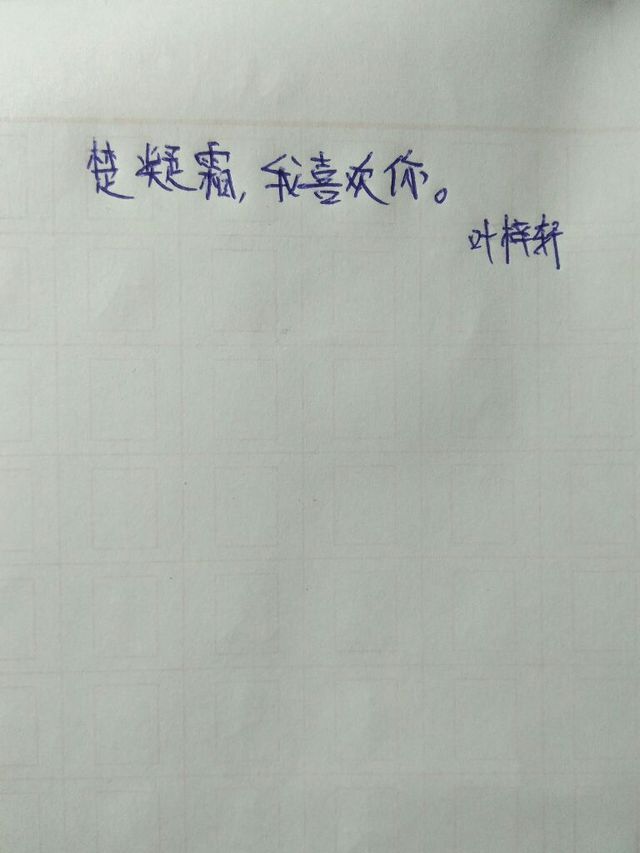 楚凝霜,我喜欢你。
叶梓轩